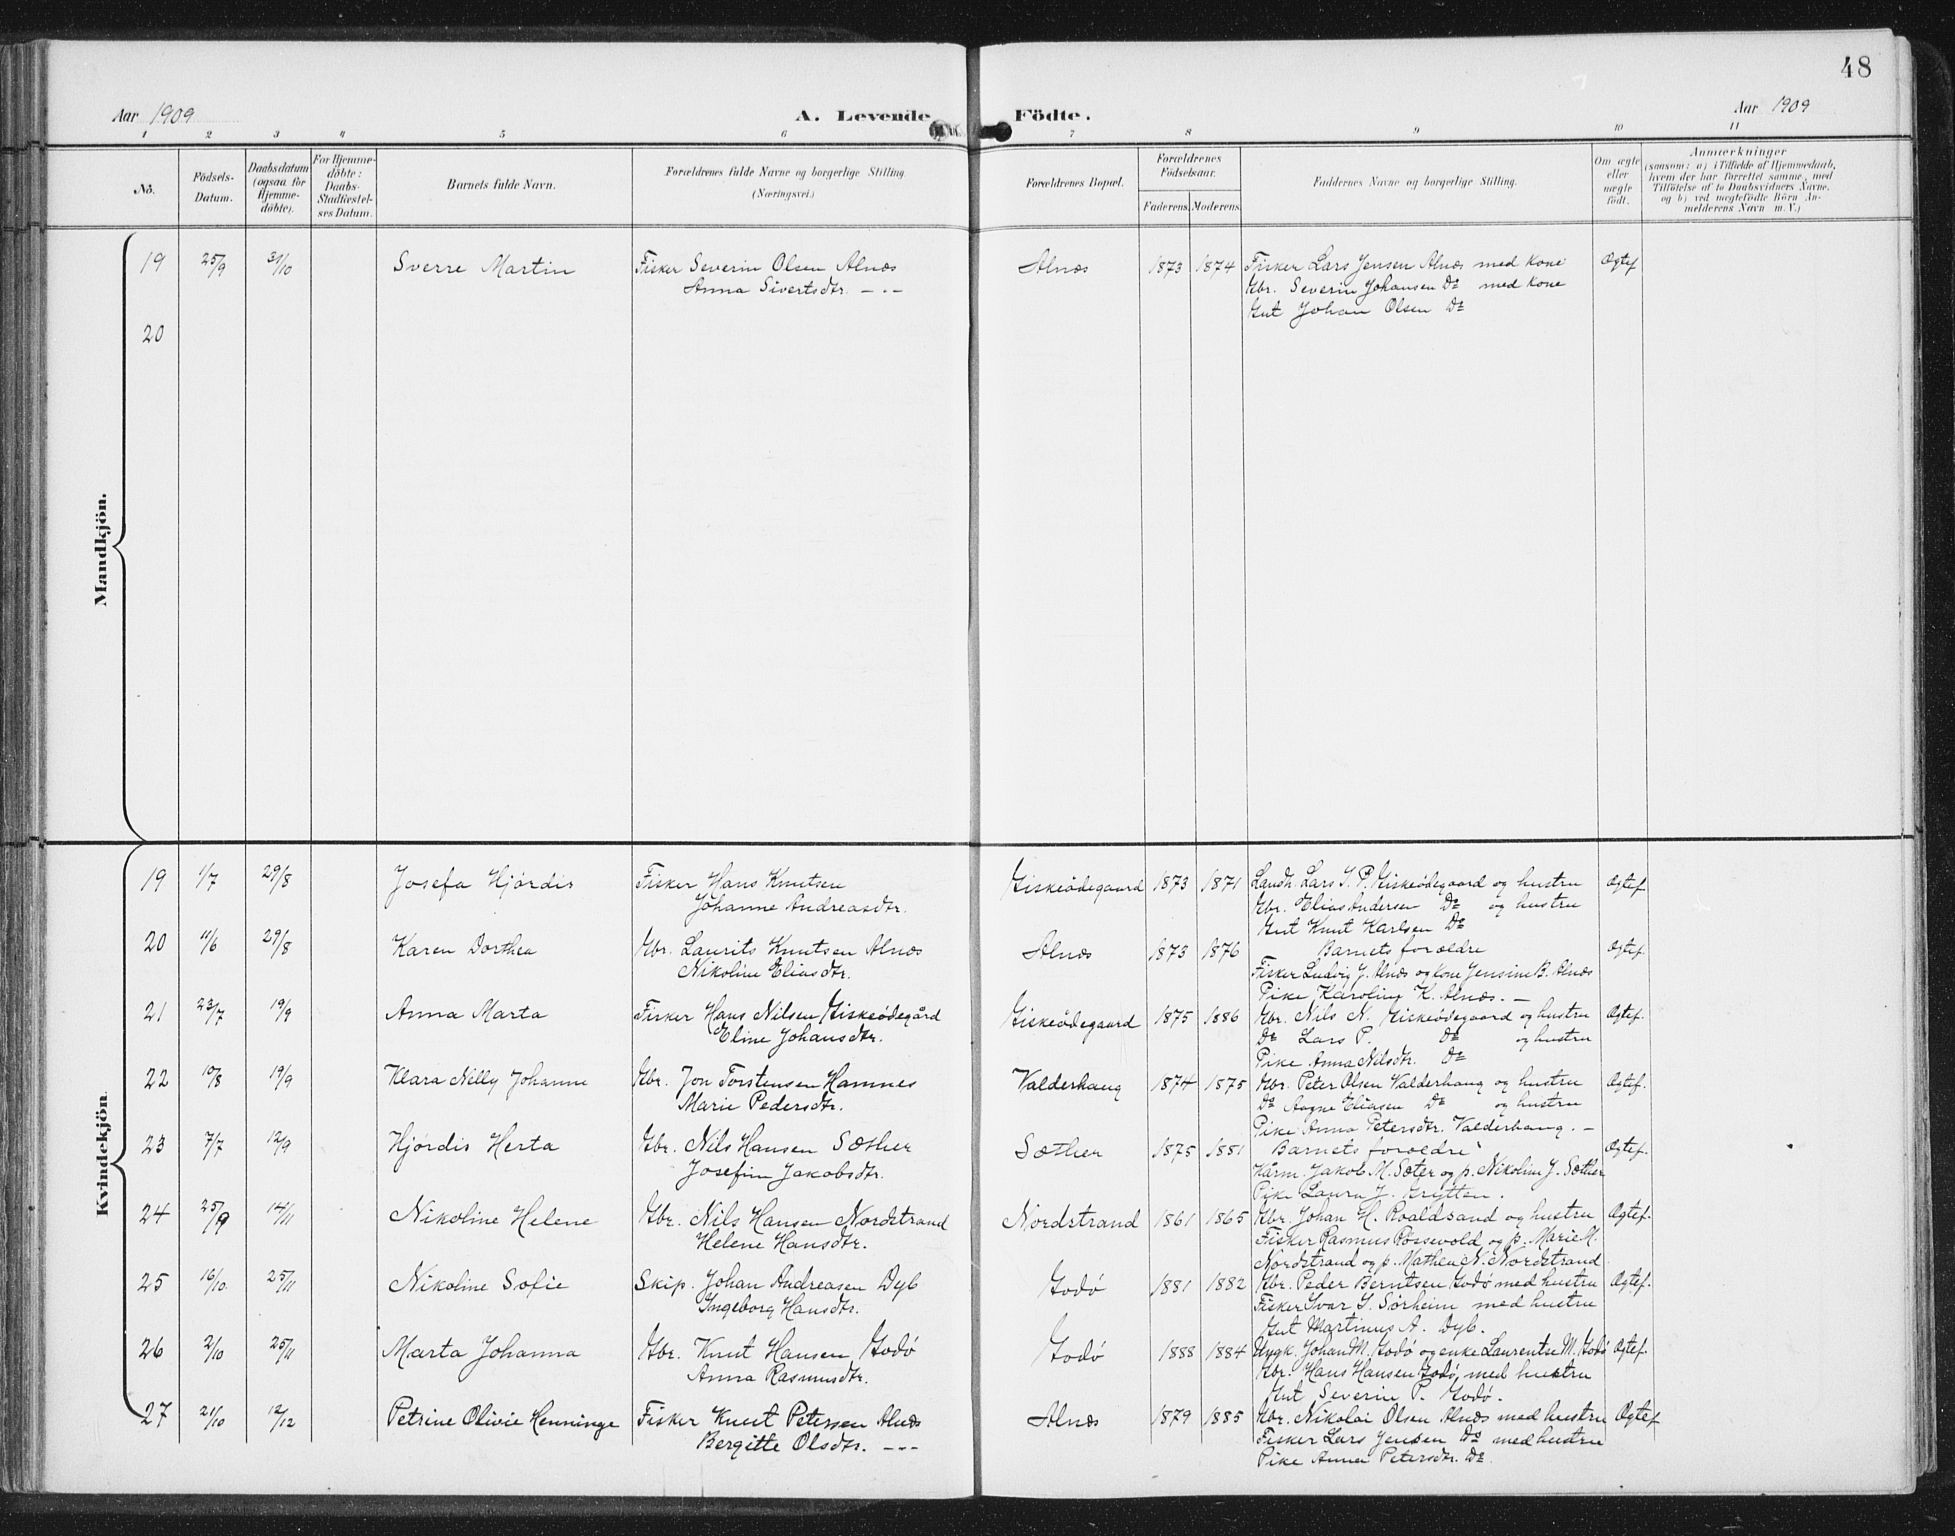 48
Aar 1909 A. Levende Födte. Aar 1909
1 2 3 4 5 6 7 8 9 10 11
No. Födsels-Datum. Daabsdatum (ogsaa for Hjemme-döbte). For Hjemme-döbte: Daabs-Stadfæstel-ses Datum. Barnets fulde Navn. Forældrenes fulde Navne og borgerlige Stilling (Næringsvei.) Forældrenes Bopæl. Forældrenes Födselsaar. Faderens. Moderens. Faddernes Navne og borgerlige Stilling. Om ægte eller uægte födt. Anmærkninger (saasom: a) i Tilfælde af Hjemmedaab, hvem der har forrettet samme, med Tilföielse af to Daabsvidners Navne, og b) ved uægtefödte Börn An-melderens Navn m. V.)
Mandkjön.
19 25/9 31/10 Sverre Martin Fisker Severin Olsen Alnæs Alnæs 1873 1874 Fisker Lars Jensen Alnæs med kone Ægtef
Anna Sivertsdtr. - - - Gbr. Severin Johansen Do med kone
Gut Johan Olsen Do
20
Kvindekjön.
19 1/7 29/8 Josefa Hjørdis Fisker Hans Knutsen Giskeødegaard 1873 1871 Landh. Lars S. P. Giskeødegaard og hustru Ægtef
Johanne Andreasdtr. Gbr. Elias Andersen Do og hustru
Gut Knut Karlsen Do
20 11/6 29/8 Karen Dorthea Gbr. Laurits Knutsen Alnæs Alnæs 1873 1876 Barnets forældre Ægtef.
Nikoline Eliasdtr. Fisker Ludvig J. Alnæs og kone Jensine B. Alnæs
Pike Karoline K. Alnæs. -
21 23/7 19/9 Anna Marta Fisker Hans Nilsen Giskeødegård Giskeødegaard 1875 1886 Gbr. Nils N. Giskeødegaard og hustru Ægtef.
Eline Johansdtr. Do Lars P. Do og hustru
Pike Anna Nilsdtr. Do
22 10/8 19/9 Klara Nelly Johanne Gbr. Jon Torstensen Hamnes Valderhaug 1874 1875 Gbr. Peter Olsen Valderhaug og hustru Ægtef.
Marie Pedersdtr. Do Aagne Eliasen Do og hustru
Pike Anna Petersdtr. Valderhaug. -
23 7/7 12/9 Hjørdis Herta Gbr. Nils Hansen Sæther Sæther 1875 1881 Barnets forældre Ægtef.
Josefine Jakobsdtr. Kårm. Jakob M. Sæter og p. Nikoline J. Sæther
Pike Laura J. Grytten.
24 25/9 14/11 Nikoline Helene Gbr. Nils Hansen Nordstrand Nordstrand 1861 1865 Gbr. Johan H. Roaldsand og hustru Ægtef.
Helene Hansdtr. Fisker Rasmus Røssevold og p. Marie M.
Nordstrand og p. Mathea N. Nordstrand
25 16/10 25/11 Nikoline Sofie Skip. Johan Andreasen Dyb Godø 1881 1882 Gbr. Peder Berntsen Godø med hustru Ægtef.
Ingeborg Hansdtr. Fisker Ivar S. Sørheim med hustru
Gut Martinus A. Dyb.
26 2/10 25/11 Marta Johanna Gbr. Knut Hansen Godø Godø 1888 1884 Ungk. Johan M. Godø og enke Laurentse M. Godø Ægtef.
Anna Rasmusdtr. Gbr. Hans Hansen Godø, med hustru
Gut Severin P. Godø.
27 21/10 12/12 Petrine Olivie Henninge Fisker Knut Petersen Alnæs Alnæs 1879 1885 Gbr. Nikolai Olsen Alnæs med hustru Ægtef
Bergitte Olsdtr. - - - Fisker Lars Jensen Do med hustru
Pike Anna Petersdtr. Do